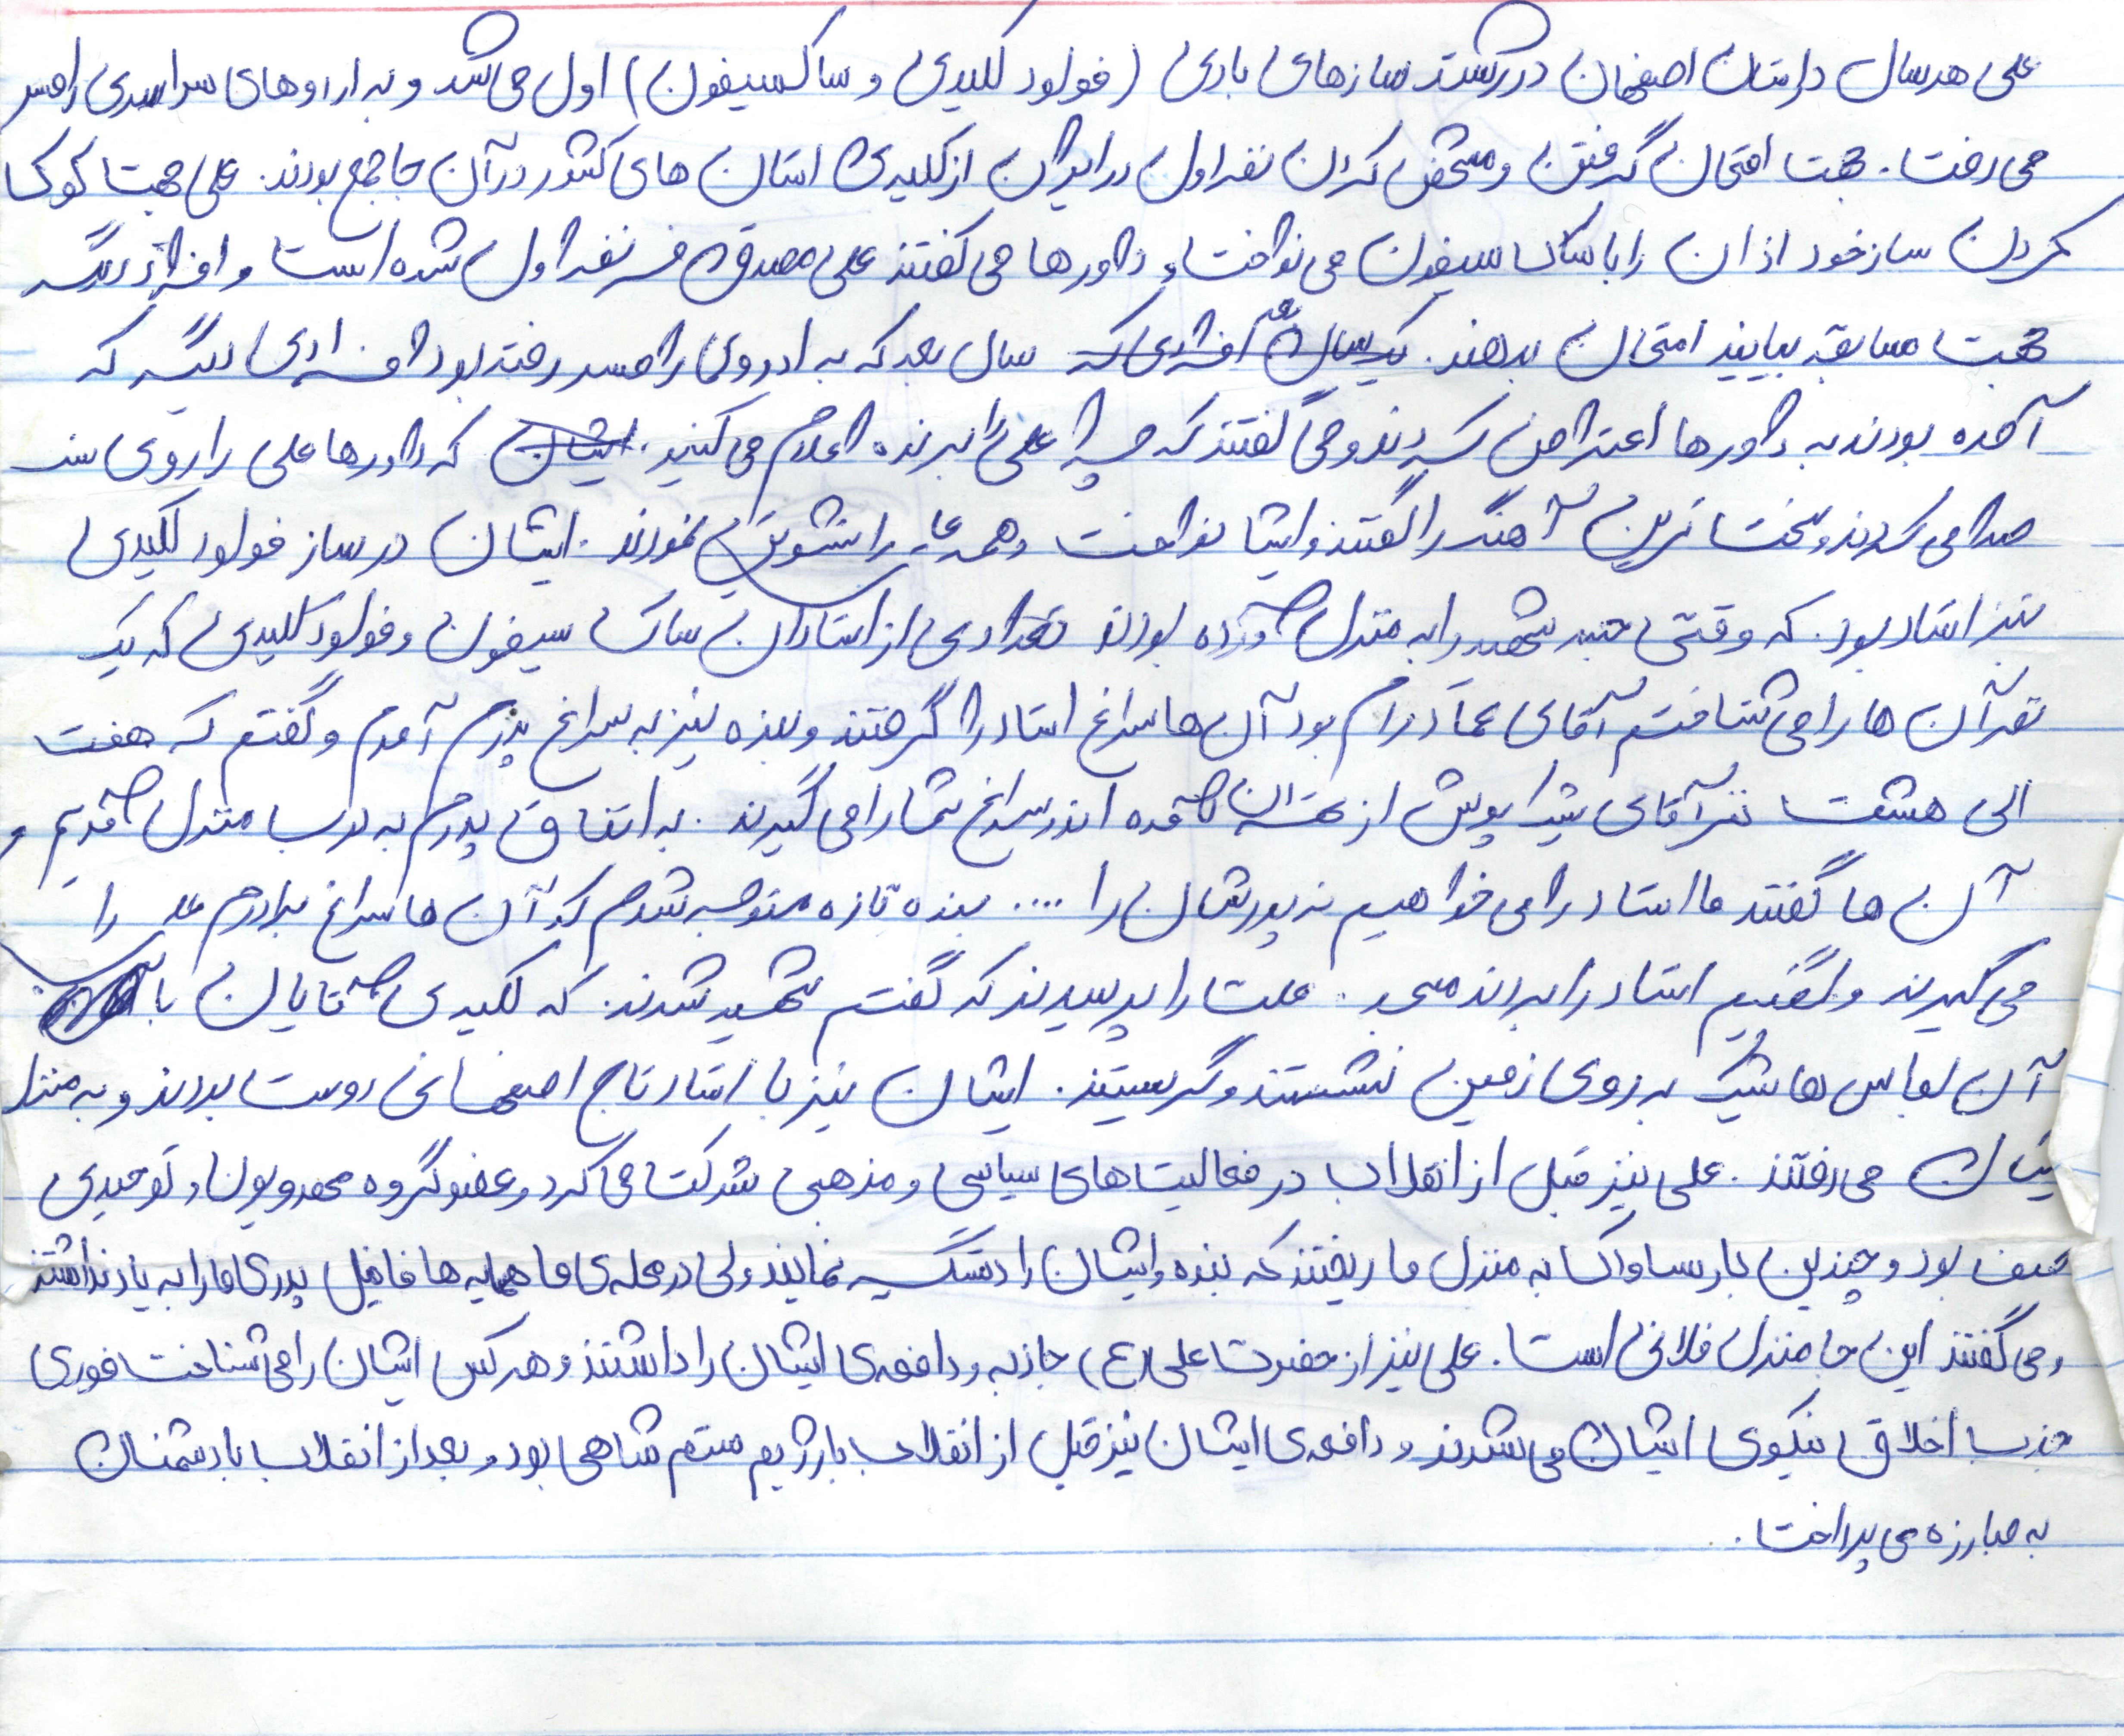 علی هر سال در استان اصفهان در رشته سازهای بادی (فولود کلیدی و ساکسیفون) اول می شد و به اردوهای سراسری رامسر
می رفت. جهت امتحان گرفتن و مشخص کردن نفر اول در ایران از کلیه ی استان های کشور در آن جا جمع بودند. علی جهت کوک
کردن ساز خود اذان را با ساک سیفون می نواخت و داورها می گفتند علی مصدق فر نفر اول شده است و افراد دیگر
جهت مسابقه بیایند امتحان بدهند. یک سال افرادی که سال بعد که به اردوی رامسر رفته بود افرادی دیگر که
آمده بودند به داورها اعتراض کردند و می گفتند که چرا علی را برنده اعلام می کنید. ایشان که داورها علی را روی سن
صدا می کردند و سخت ترین آهنگ را گفتند و ایشا نواخت و همه علی را تشویق نمودند. ایشان در ساز فولود کلیدی
نیز استاد بود. که وقتی شهید را به منزل آورده بودند تعدادی از استادان ساک سیفون و فولود کلیدی که یک
نفر آن ها را می شناختم آقای عماد رام بود آن ها سراغ استاد را گرفتند و بنده نیز به سراغ پدرم آمدم و گفتم که هفت
الی هشت نفر آقای شیک پوش از تهران آمده اند سراغ شما را می گیرند. به اتفاق پدرم به درب منزل آمدیم و
آن ها گفتند ما استاد را می خواهیم نه پدرشان را .... بنده تازه متوجه شدم که آن ها سراغ برادرم علی را
می گیرند و گفتیم استاد را بردند مسجد. علت را پرسیدند که گفتم شهید شدند. که کلیه ی آقایان با
آن لباس ها شیک بر روی زمین نشستند و گریستند. ایشان نیز با استاد تاج اصفهانی دوست بودند و به منزل
یشان می رفتند. علی نیز قبل از انقلاب در فعالیت های سیاسی و مذهبی شرکت می کرد و عضو گروه مهدویون و توحیدی
صف بود و چندین بار ساواک به منزل ما ریختند که بنده و ایشان را دستگیر نمایند ولی در محله ی ما همسایه ها فامیل پدری ما را به یاد نداشتند
و می گفتند این جا منزل فلانی است. علی نیز از حضرت علی (ع) جاذبه و دافعه ی ایشان را داشتند و هر کس ایشان را می شناخت فوری
جذب اخلاق نیکوی ایشان می شدند و دافعه ی ایشان نیز قبل از انقلاب با رژیم ستم شاهی بود و بعد از انقلاب با دشمنان
به مبارزه می پرداخت.